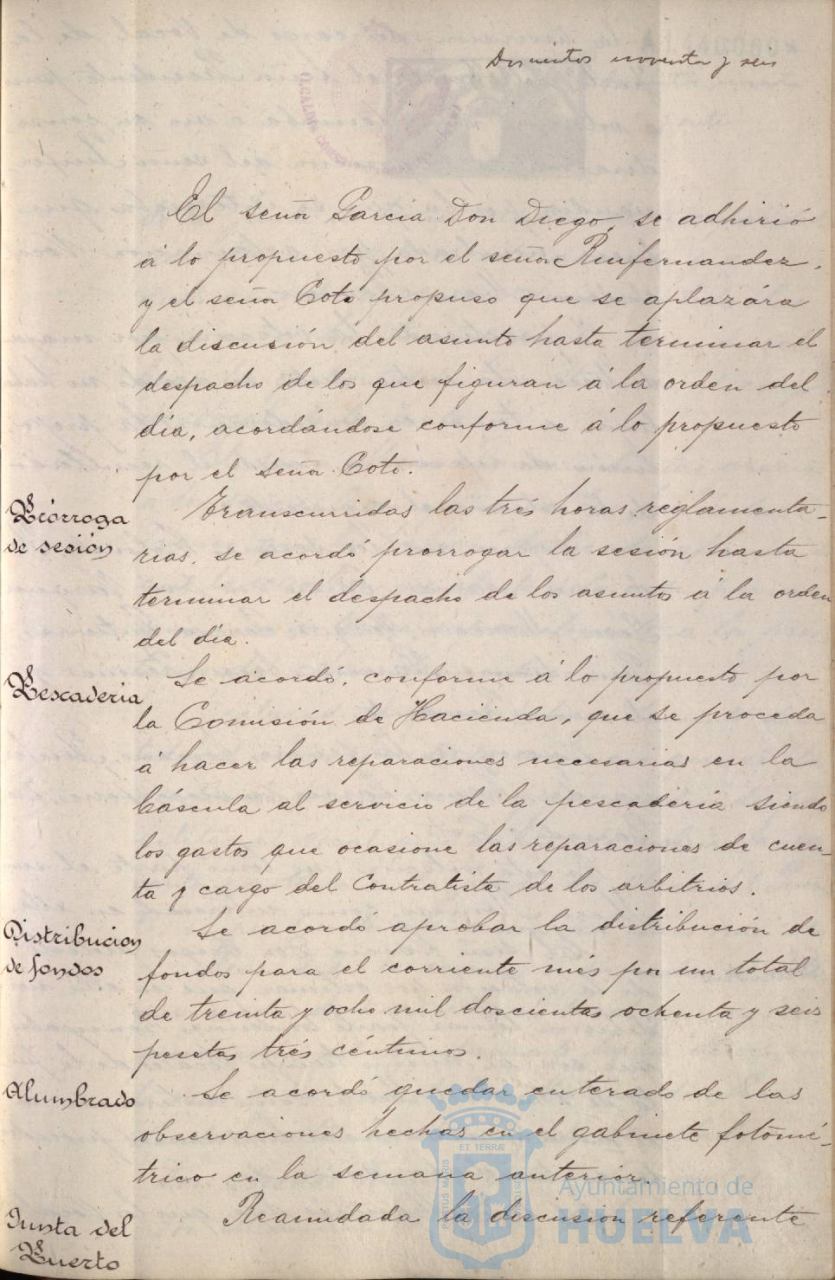 Doscientos noventa y seis
El señor Garcia Don Diego, se adhirió
á lo propuesto por el señor Ruifernandez,
y el señor Coto propuso que se aplazára
la discusión del asunto hasta terminar el
despacho de los que figuran á la orden del
día, acordándose conforme á lo propuesto
por el señor Coto.
Prórroga
de sesión
Transcurridas las trés horas reglamenta-
rias, se acordó prorrogar la sesión hasta
terminar el despacho de los asuntos á la orden
del día.
Pescaderia
Se acordó, conforme á lo propuesto por
la Comisión de Hacienda, que se proceda
á hacer las reparaciones necesarias en la
báscula al servicio de la pescadería siendo
los gastos que ocasione las reparaciones de cuen-
ta y cargo del Contratista de los arbitrios.
Distribucion
de fondos
Se acordó aprobar la distribución de
fondos para el corriente més por un total
de treinta y ocho mil doscientas ochenta y seis
pesetas trés céntimos.
Alumbrado
Se acordó quedar enterado de las
observaciones hechas en el gabinete fotomé-
trico en la semana anterior.
Junta del
Puerto
Reanudada la discusión referente
ET TERRÆ
Ayuntamiento de
HUELVA